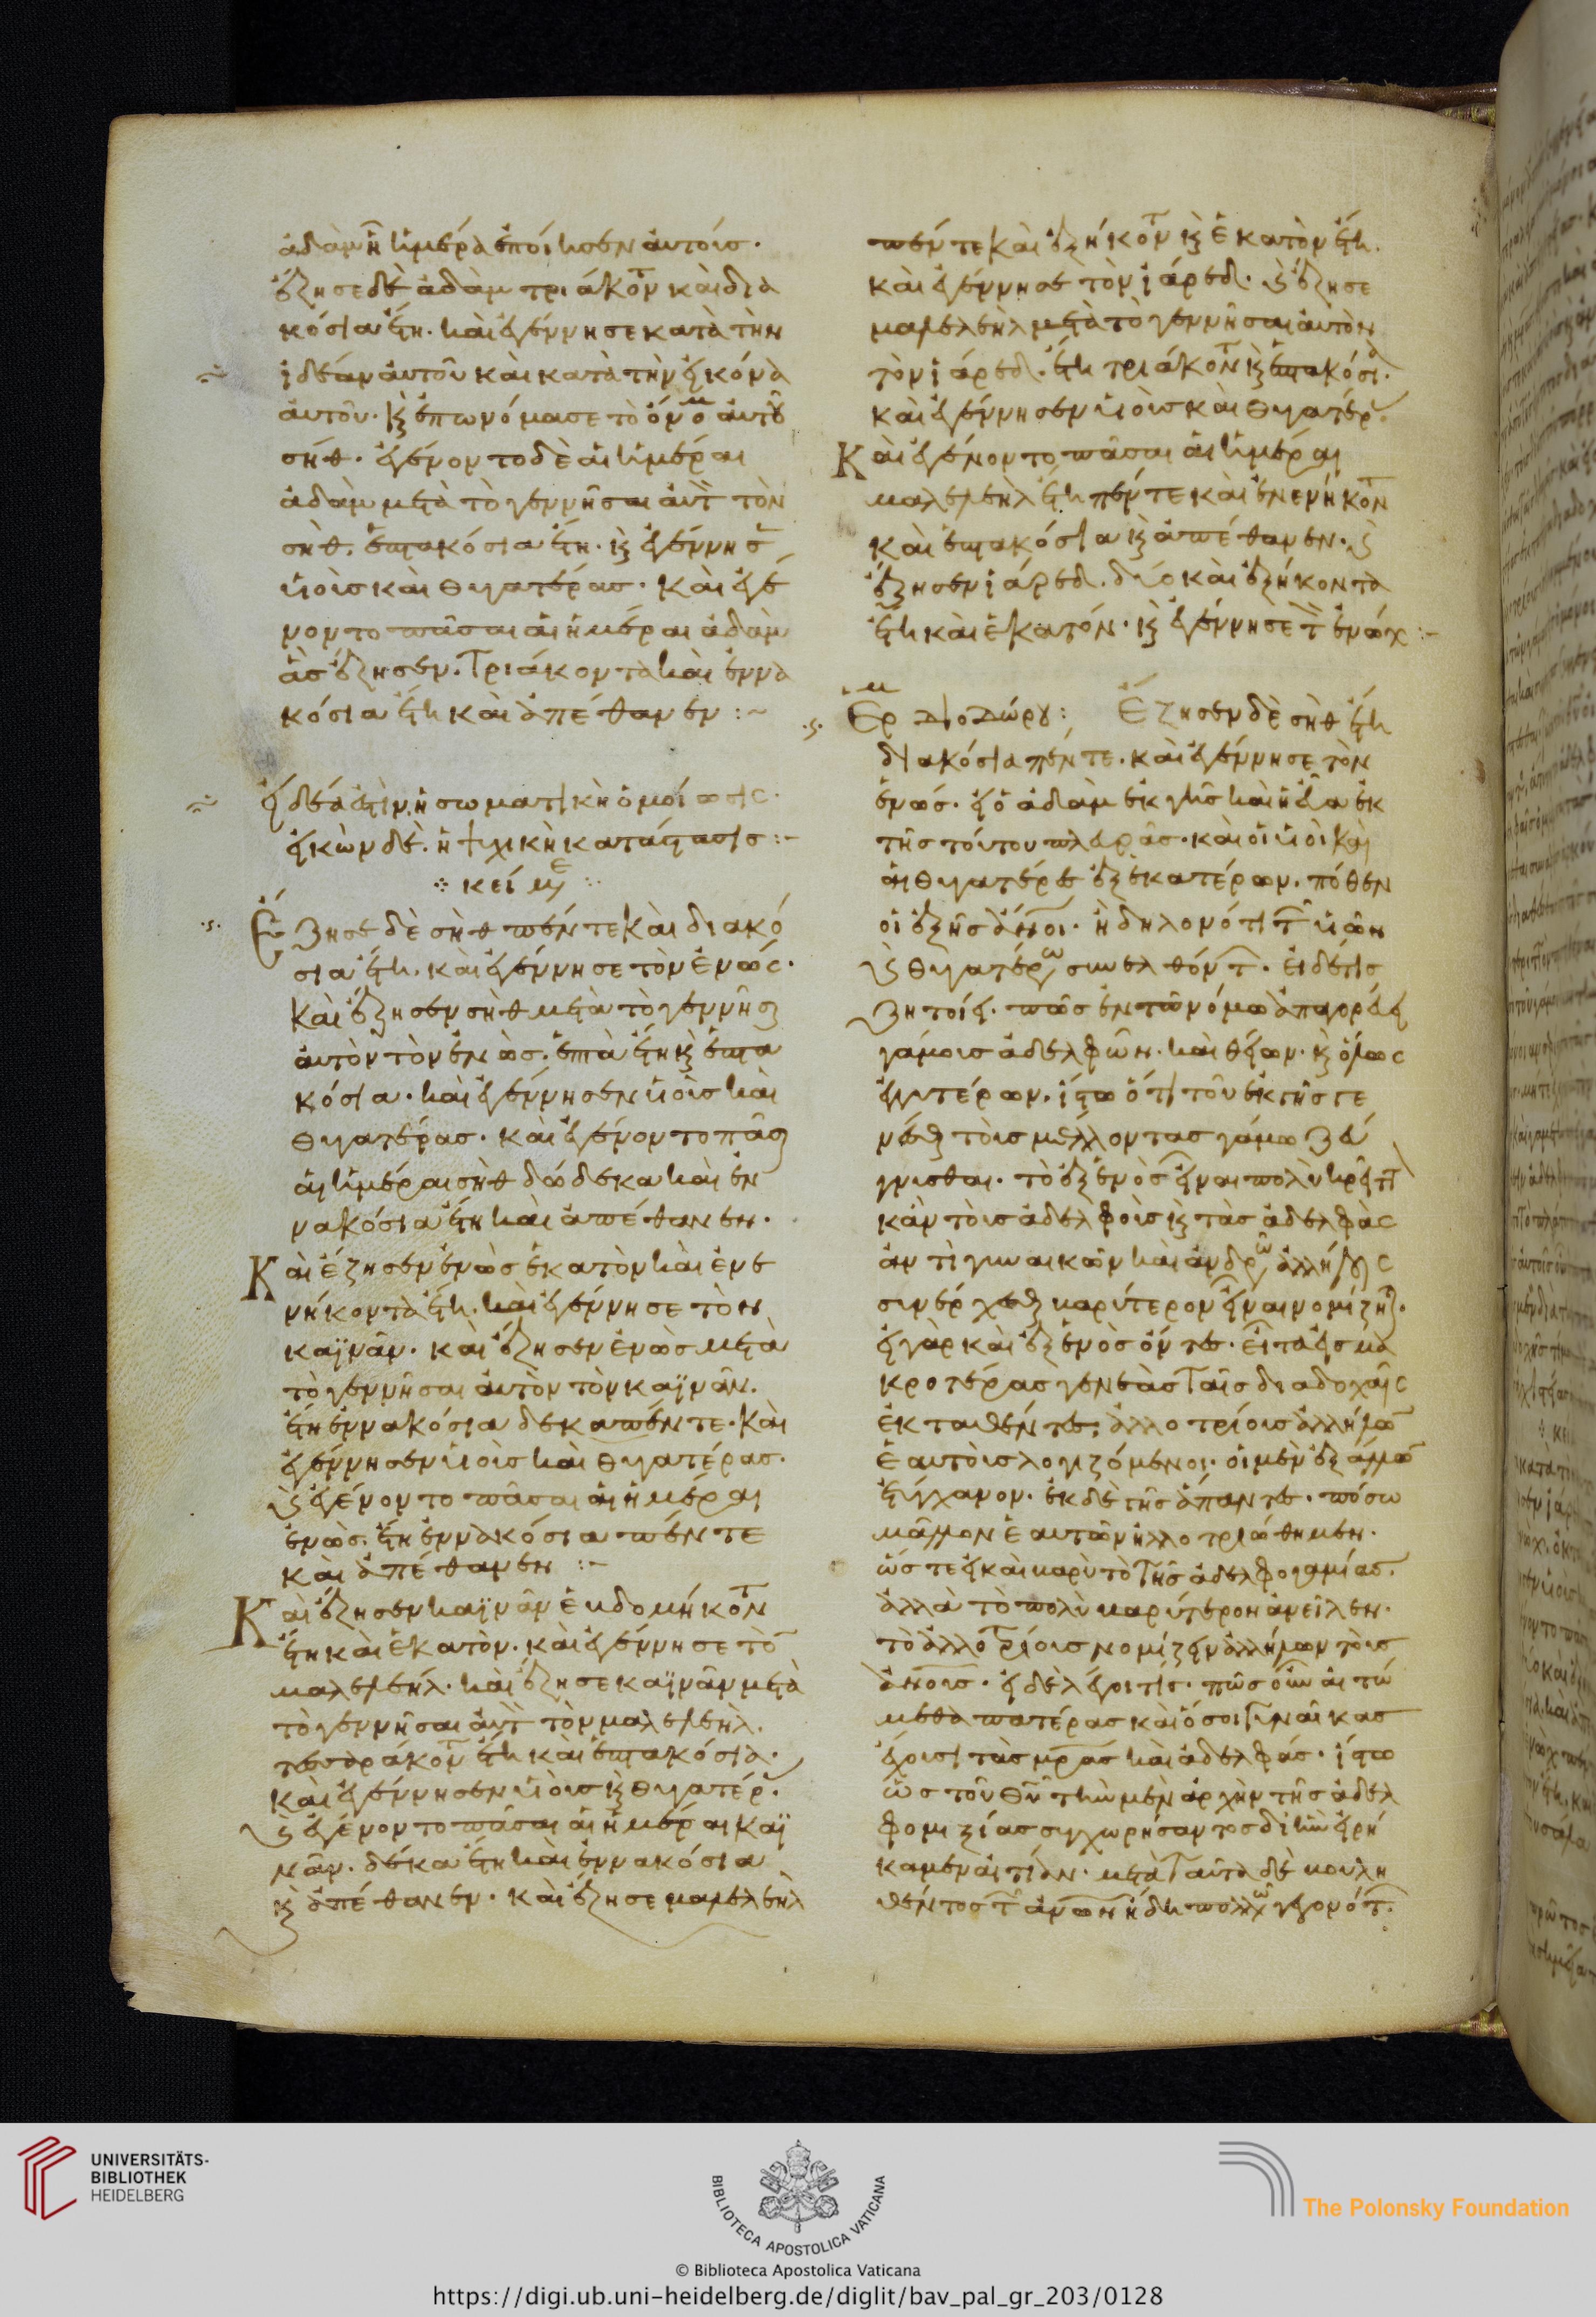 ἀδάμ ἡ ἡμέρα ἐποίησεν αὐτούς.
ἔζησε δὲ ἀδὰμ τριάκοντ καὶ δια
κόσια ἔτη. καὶ ἐγέννησε κατὰ τὴν
ἰδέαν αὐτοῦ καὶ κατὰ τὴν εἰκόνα
αὐτοῦ. κ ἐπωνόμασε τὸ ὄνομ αὐτοῦ
σήθ. ἐγένοντο δὲ αἱ ἡμέραι
ἀδὰμ μετὰ τὸ γεννῆσαι αὐτ τὸν
σὴθ. ἑπτακόσια ἔτη. κ ἐγέννησ
υἱοὺς καὶ θυγατέρας. καὶ ἐγέ
νοντο πᾶσαι αἱ ἡμέραι ἀδὰμ
ἃς ἔζησεν. τριάκοντα καὶ ἐννα
κόσια ἔτη καὶ ἀπέθανεν :~
ἰδέα ἐστὶν ἡ σωματικὴ ὁμοίωσις.
εἰκὼν δὲ. ἡ ψυχικὴ κατάστασις :-
κείμε
Ἔζησε δὲ σὴθ πέντε καὶ διακό
σια ἔτη. καὶ ἐγέννησε τὸν ἐνώς.
καὶ ἔζησεν σὴθ μετὰ τὸ γεννῆσαι
αὐτὸν τὸν ἐνὼς. ἑπτὰ ἔτη κ ἑπτα
κόσια. καὶ ἐγέννησεν υἱοὺς καὶ
θυγατέρας. καὶ ἐγένοντο πᾶσαι
αἱ ἡμέραι σὴθ δώδεκα καὶ ἐν
νακόσια ἔτη καὶ ἀπέθανεν.
Καὶ ἔζησεν ἐνὼς ἑκατὸν καὶ ἐνε
νήκοντα ἔτη. καὶ ἐγέννησε τὸν
καϊνᾶν. καὶ ἔζησεν ἐνὼς μετὰ
τὸ γεννῆσαι αὐτὸν τὸν καϊνᾶν.
ἔτη ἐννακόσια δεκαπέντε. καὶ
ἐγέννησεν υἱοὺς καὶ θυγατέρας.
κ ἐγένοντο πᾶσαι αἱ ἡμέραι
ἐνὼς. ἔτη ἐννακόσια πέντε
καὶ ἀπέθανεν :-
Καὶ ἔζησεν καϊνᾶν ἑβδομήκοντ
ἔτη καὶ ἑκατὸν. καὶ ἐγέννησε τὸ
μαλελεήλ. καὶ ἔζησε καϊνᾶν μετὰ
τὸ γεννῆσαι αὐτ τὸν μαλελεὴλ.
τεσσαράκοντ ἔτη καὶ ἑπτακόσια.
καὶ ἐγέννησεν υἱοὺς κ θυγατέρ.
κ ἐγένοντο πᾶσαι αἱ ἡμέραι καϊ
νᾶν. δέκα ἔτη καὶ ἐννακόσια
κ ἀπέθανεν. καὶ ἔζησε μαλελεὴλ
πέντε καὶ ἑξήκοντ κ ἑκατὸν ἔτη.
καὶ ἐγέννησε τὸν ἰάρεδ. κ ἔζησε
μαλελεὴλ μετὰ τὸ γεννῆσαι αὐτὸν
τὸν ἰάρεδ. ἔτη τριάκοντ κ ἑπτακόσια.
καὶ ἐγέννησεν υἱοὺς καὶ θυγατέρ.
Καὶ ἐγένοντο πᾶσαι αἱ ἡμέραι
μαλελεὴλ ἔτη πέντε καὶ ἐνενήκοντ
καὶ ἑπτακόσια κ ἀπέθανεν. κ
ἔζησεν ἰάρεδ. δύο καὶ ἑξήκοντα
ἔτη καὶ ἑκατόν. κ ἐγέννησε τ ἐνώχ :-
Ἑρμ Διοδώρου: Ἔζησεν δὲ σὴθ ἔτη
διακόσια πέντε. καὶ ἐγέννησε τὸν
ἐνώς. εἰ ὁ ἀδὰμ ἐκ γῆς καὶ ἡ εὔα ἐκ
τῆς τούτου πλευρᾶς. καὶ οἱ υἱοὶ καὶ
αἱ θυγατέρες ἐξ ἑκατέρων. πόθεν
οἱ ἐξῆς ἄνοι. ἢ δηλονότι τ υἱῶν
κ θυγατέρων συνελθόντ. εἰ δέ τις
ζητοίη. πῶς ἐν τῷ νόμῳ ἀπαγορεύει
γάμους ἀδελφῶν. καὶ θείων. κ ὅλως
ἐγγυτέρων. ἴστω ὅτι τοῦ ἐκ τῆς γε
νέσεως τοὺς μέλλοντας γάμῳ ζεύ
γνυσθαι. τὸ ἐξ ἑνὸς εἶναι πολὺ κρεῖττ
κἂν τοὺς ἀδελφοὺς κ τὰς ἀδελφὰς
ἀντὶ γυναικῶν καὶ ἀνδρῶν ἀλλήλοις
συνέρχεσθαι βαρύτερον εἶναι νομίζητ.
εἰ γὰρ καὶ ἐξ ἑνὸς ὄντες. εἶτα εἰς μα
κροτέρας γενεὰς ταῖς διαδοχαῖς
ἐκταθέντες. ἀλλοτρίους ἀλλήλων
ἑαυτοὺς λογιζόμενοι. εἰ μὲν ἐξ ἄλλων
ἐτύγχανον. ἐκ δὲ τῆς ἅπαντες. πόσω
μᾶλλον ἑαυτῶν ἠλλοτριώθημεν.
ὥστε εἰ καὶ βαρὺ τὸ τῆς ἀδελφογαμίας.
ἀλλὰ τὸ πολὺ βαρύτερον ἀνεῖλεν.
τὸ ἀλλοτρίους νομίζειν ἀλλήλων τοὺς
ἀνους. εἰ δὲ λέγοι τις. πῶς οὖν αἰτιώ
μεθα πατέρας καὶ ὅσοι γυναῖκας
ἔχουσι τὰς μρας καὶ ἀδελφάς. ἴστω
ὡς τοῦ θυ τὴν μὲν ἀρχὴν τῆς ἀδελ
φομιξίας συγχωρήσαντος δι ἣν εἰρή
καμεν αἰτίαν. μετὰ ταῦτα δὲ βουλη
θέντος τ ἀνων ἤδη πολλῶν γεγονότ.
UNIVERSITÄTS-
BIBLIOTHEK
HEIDELBERG
BIBLIOTECA APOSTOLICA VATICANA
The Polonsky Foundation
© Biblioteca Apostolica Vaticana
https://digi.ub.uni-heidelberg.de/diglit/bav_pal_gr_203/0128